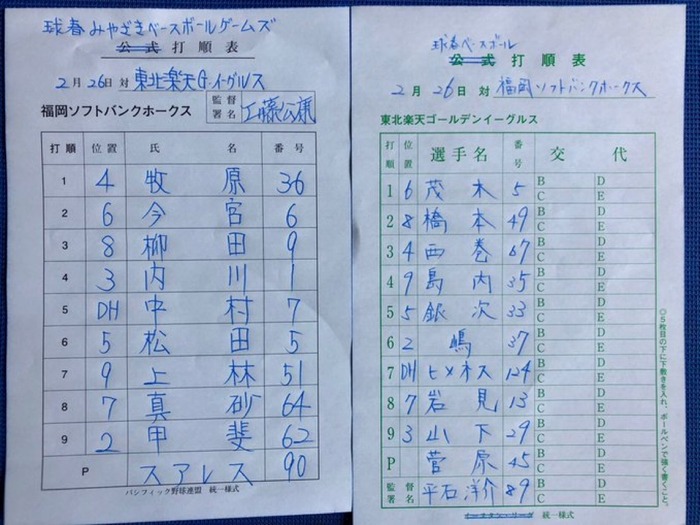 球春みやざきベースボールゲームズ
公式打順表
2月26日対東北楽天G.イーグルス
福岡ソフトバンクホークス 監督署名 工藤公康
打順 位置 氏名 番号
1 4 牧原 36
2 6 今宮 6
3 8 柳田 9
4 3 内川 1
5 DH 中村 7
6 5 松田 5
7 9 上林 51
8 7 真砂 64
9 2 甲斐 62
P スアレス 90
パシフィック野球連盟 統一様式
球春ベースボール
公式打順表
2月26日対福岡ソフトバンクホークス
東北楽天ゴールデンイーグルス
打順 位置 選手名 番号 交代
1 6 茂木 5 B D
C E
2 8 橋本 49 B D
C E
3 4 西巻 67 B D
C E
4 9 島内 35 B D
C E
5 5 銀次 33 B D
C E
6 2 嶋 37 B D
C E
7 DH ヒメネス 124 B D
C E
8 7 岩見 13 B D
C E
9 3 山下 29 B D
C E
P 菅原 45
監督署名 平石洋介 89
統一様式
◎5枚目の下に下敷きを入れ、ボールペンで強く書くこと。